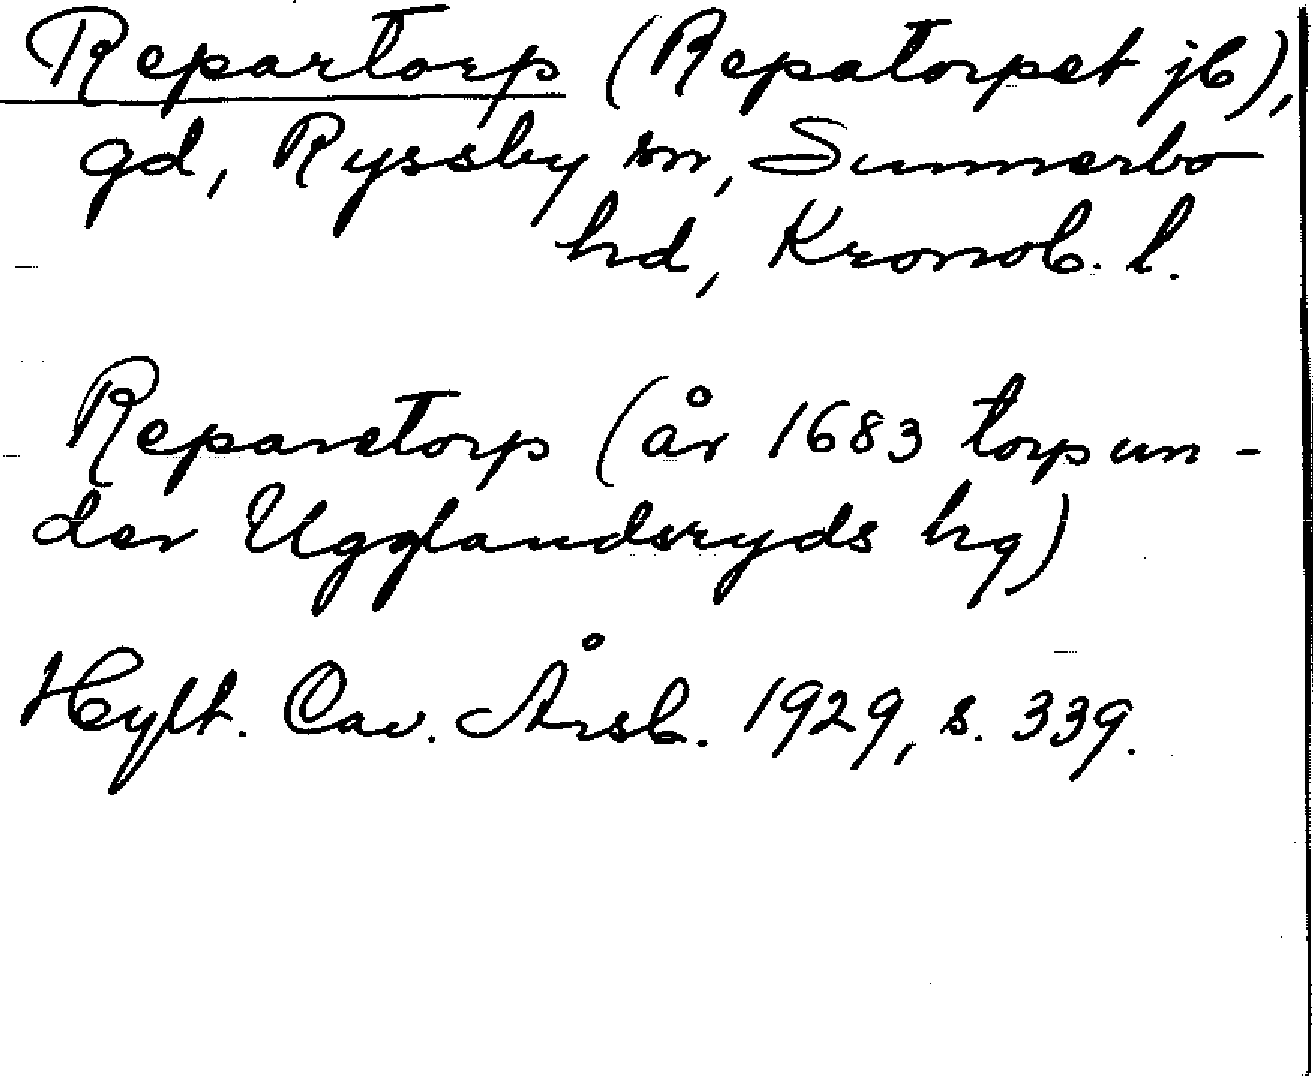 Repartorp (Repatorpet jb),
gd, Ryssby sn, Sunnerbo
hd, Kronob. l.
Reparetorp (år 1683 torp un-
der Ugglandsryds hg)
Hylt. Cav. Årsb. 1929, s. 339.